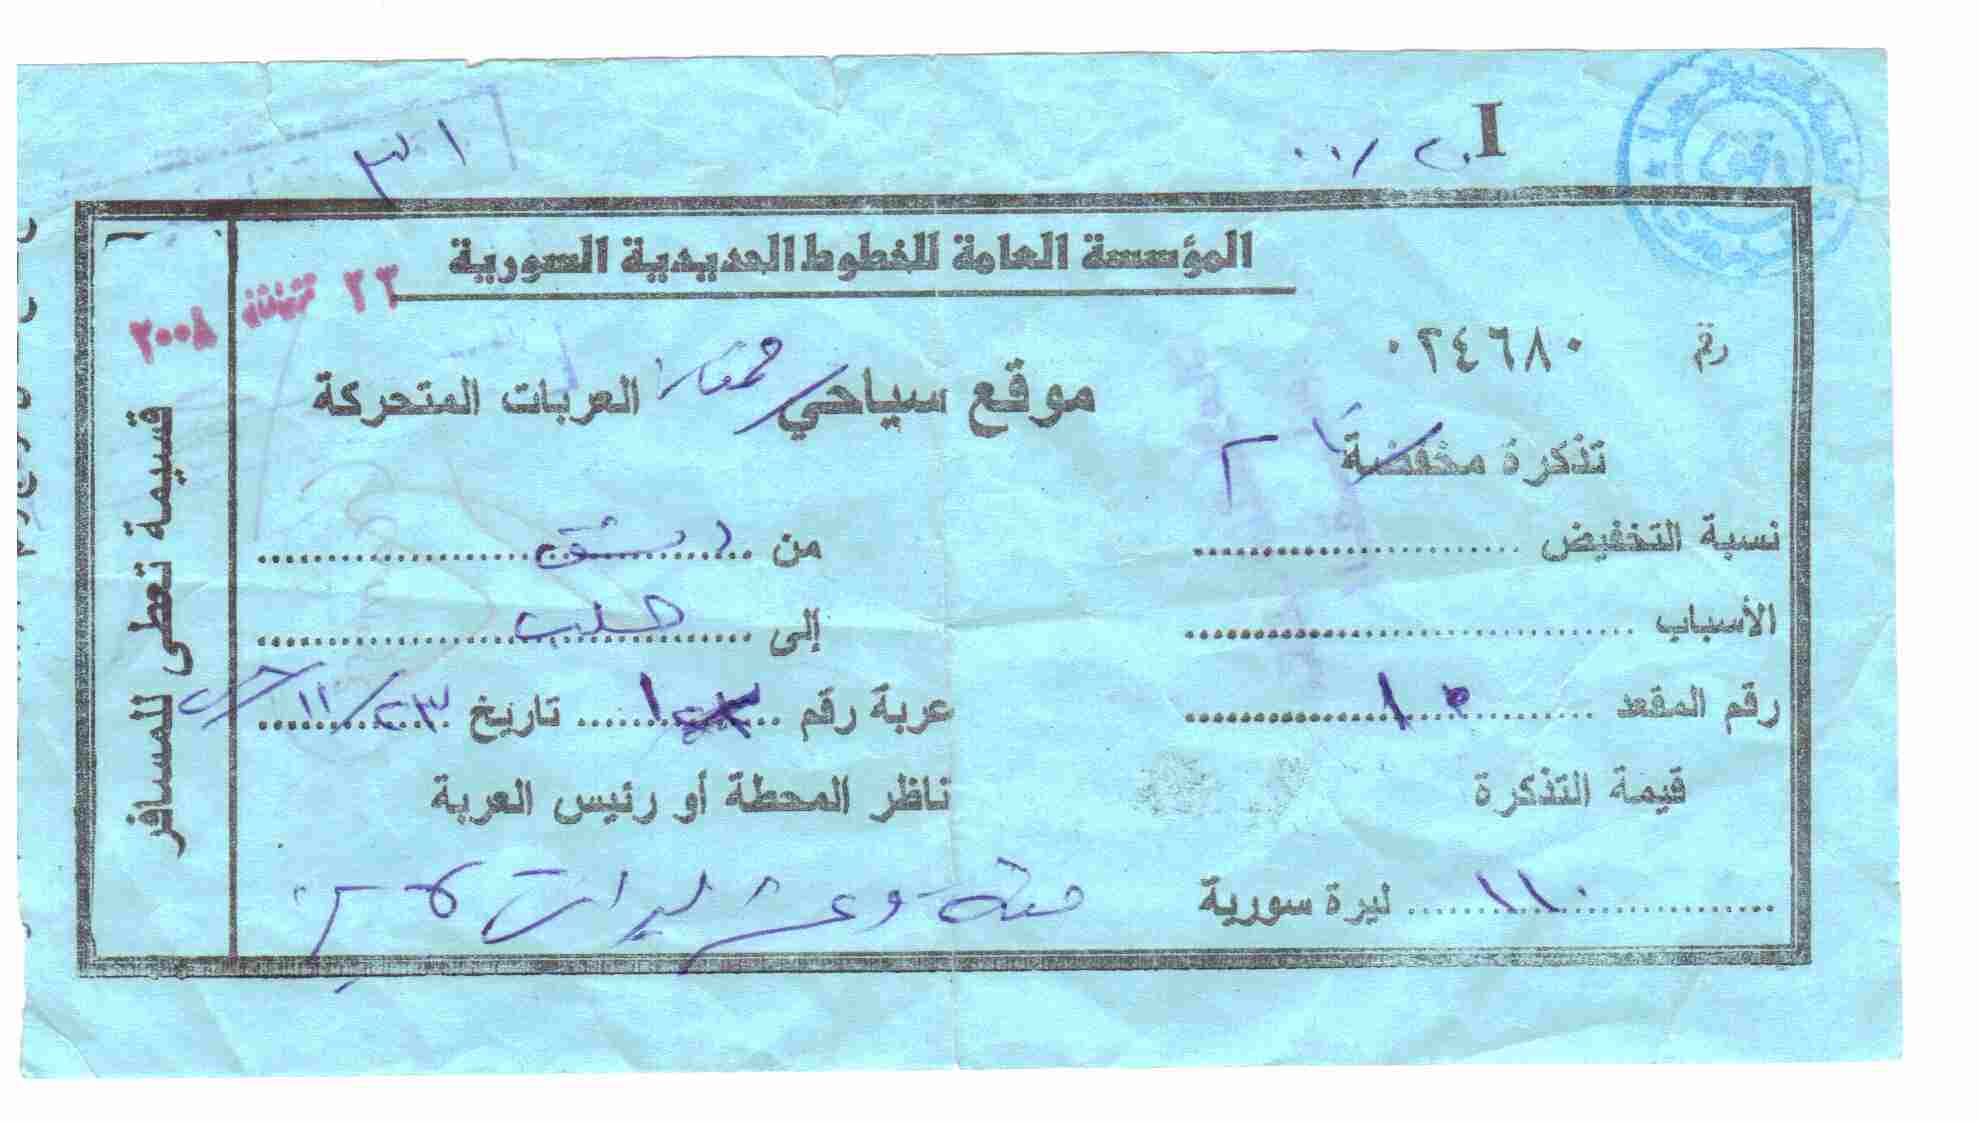 ٣١
I
المؤسسة العامة للخطوط الحديدية السورية
رقم ٠٢٤٦٨٠
٢٠٠٨
موقع سياحي العربات المتحركة
تذكرة مخفضة
نسبة التخفيض ........................
من دمشق
الأسباب ........................
إلى حلب
رقم المقعد
عربة رقم
تاريخ ٢٣/١١
قيمة التذكرة
ناظر المحطة أو رئيس العربة
١١٠ ليرة سورية
مئة وعشر ليرات
قسيمة تعطى للمسافر